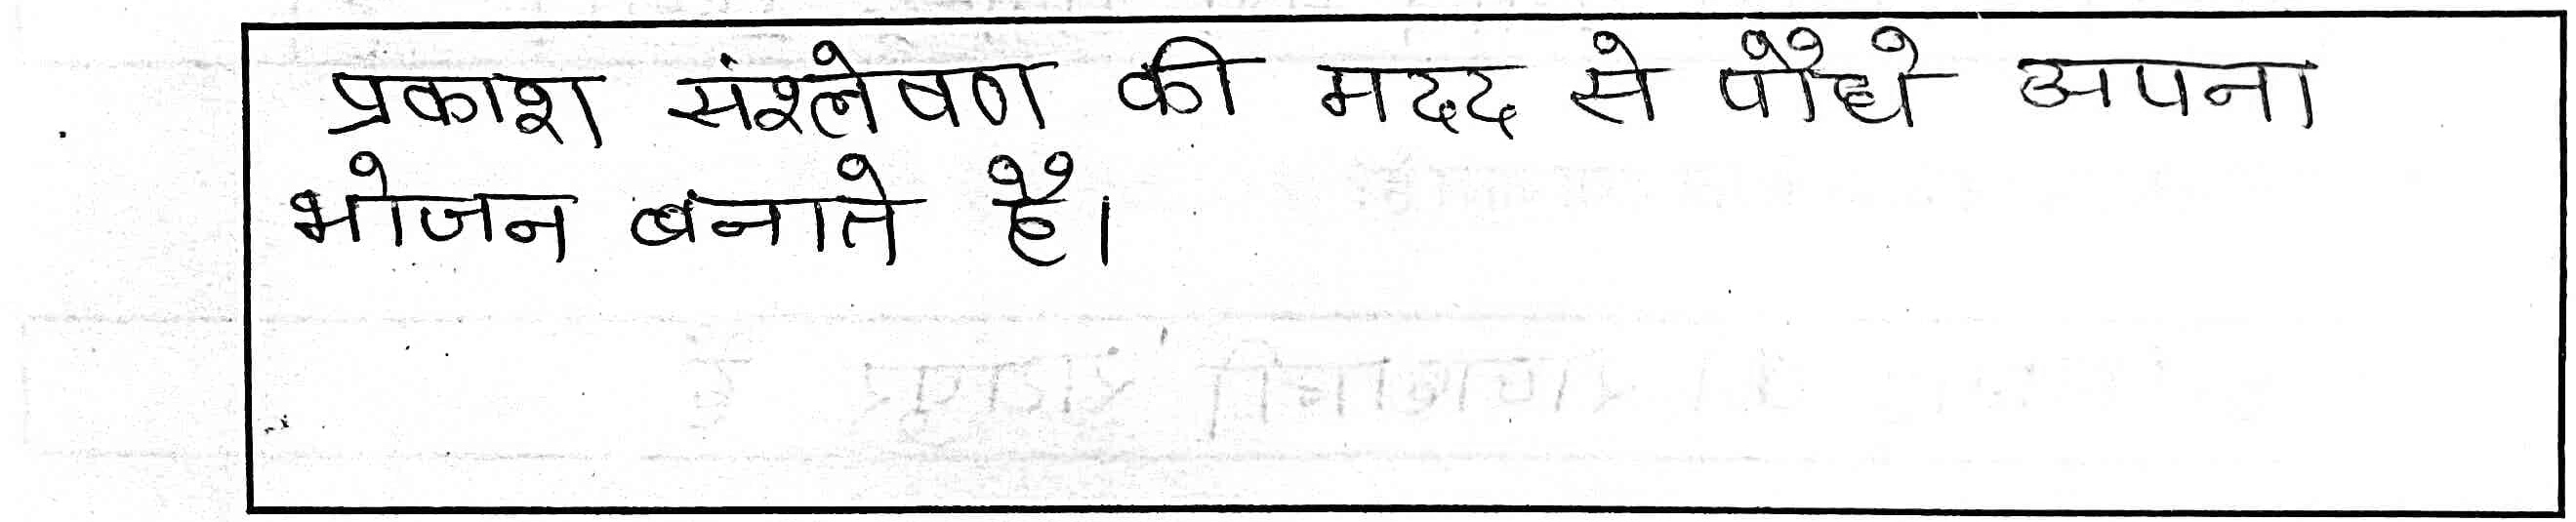 प्रकाश संश्लेषण की मदद से पौधे अपना
भोजन बनाते हैं।